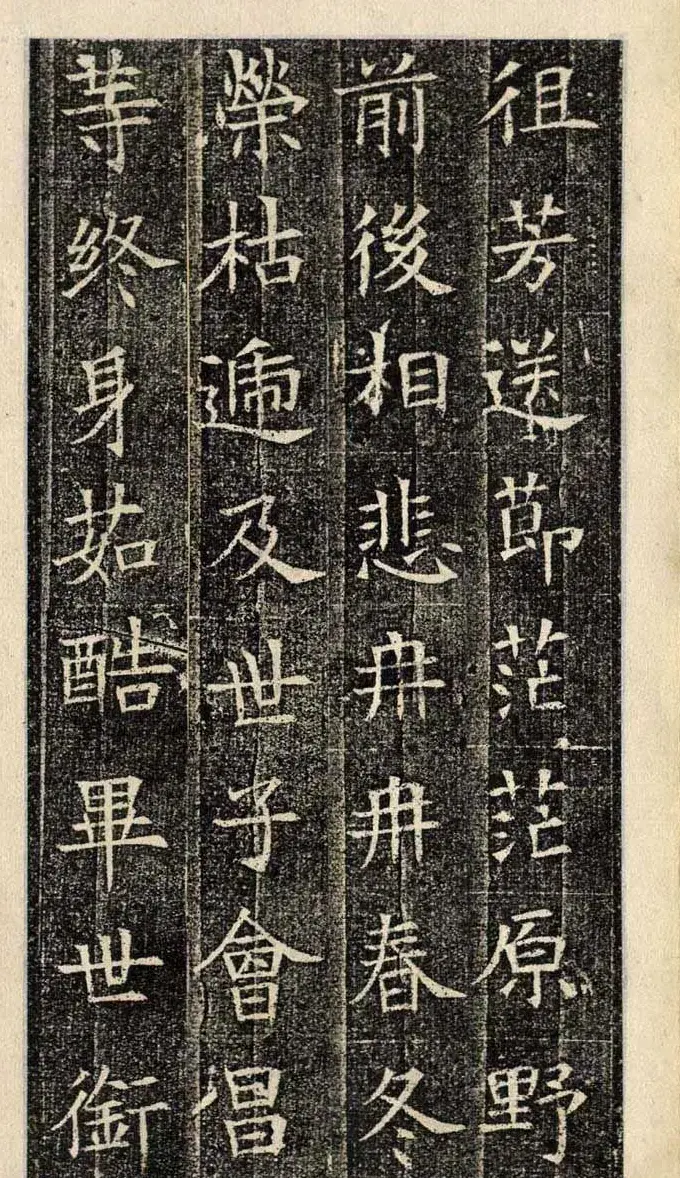 徂芳送莭茫茫原野
前後相悲冉冉春冬
榮枯遞及世子會倡
等終身茹酷畢世銜